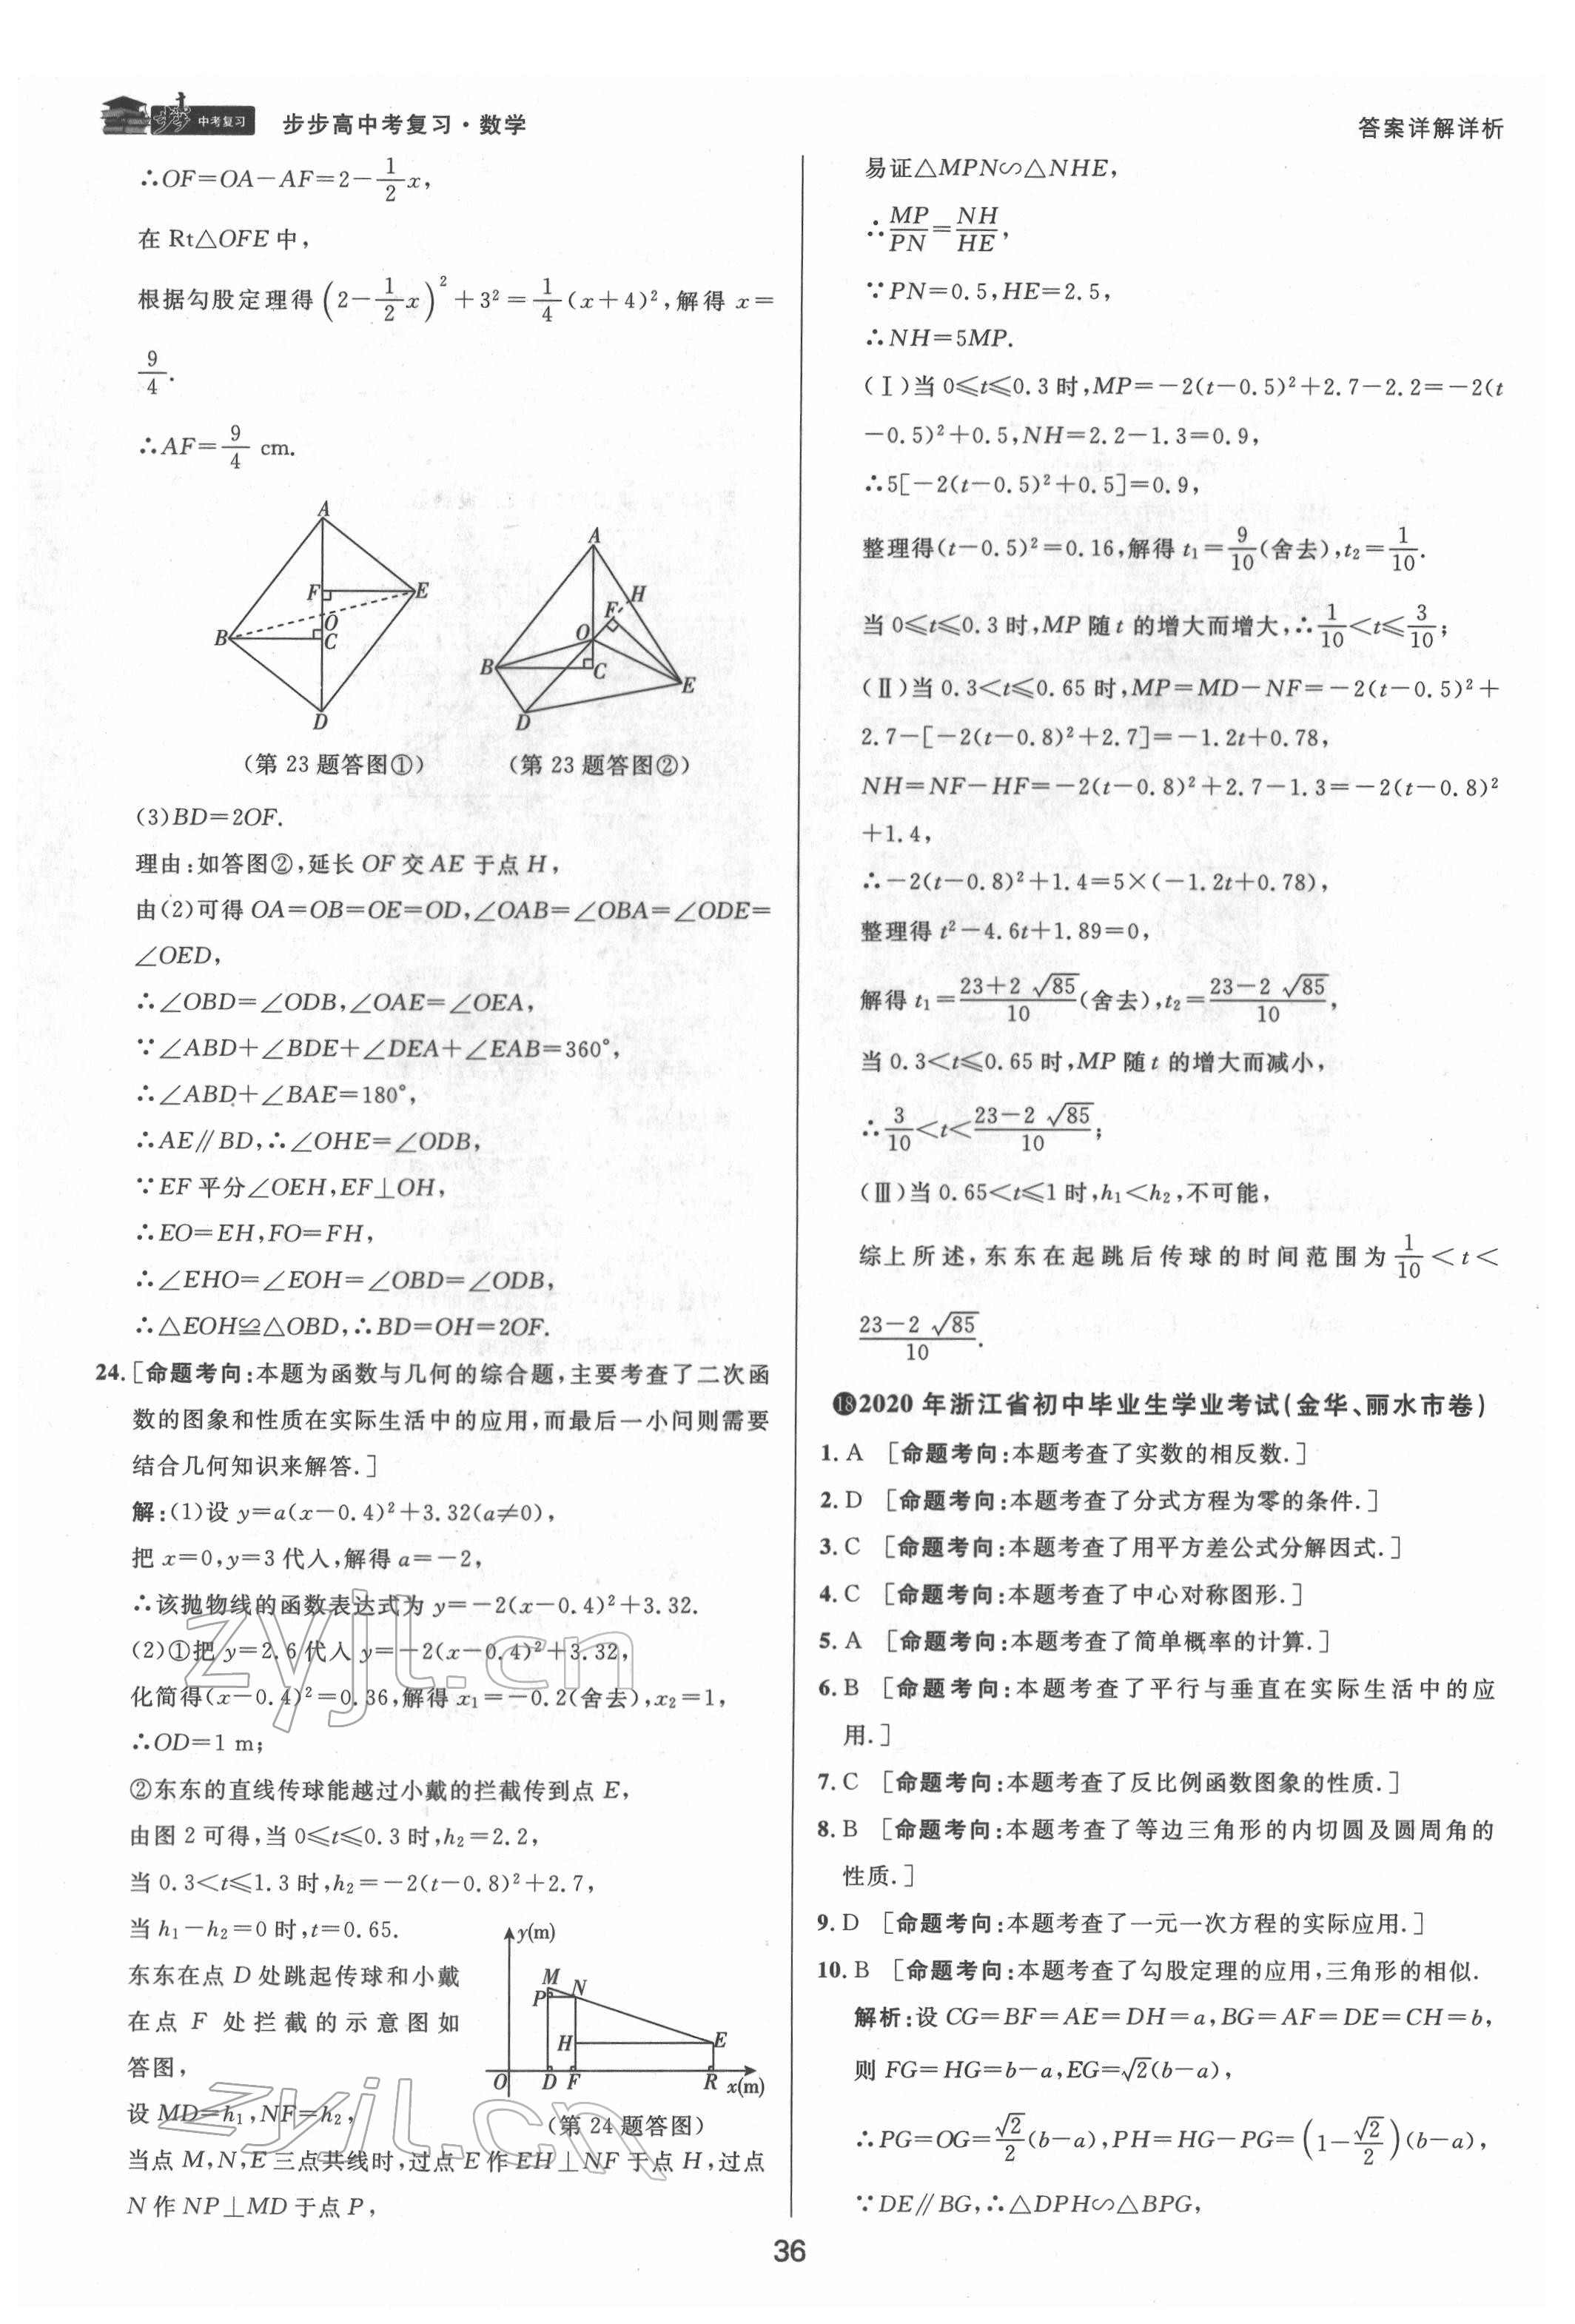 中考复习
步步高中考复习·数学
答案详解详析
∴OF=OA-AF=2-1/2x,
在 Rt△OFE 中,
根据勾股定理得(2-1/2x)²+3²=1/4(x+4)²,解得 x=
9/4.
∴AF=9/4 cm.
A
F
E
O
B
C
D
(第 23 题答图①)
A
H
F
O
B
C
E
D
(第 23 题答图②)
(3)BD=2OF.
理由:如答图②,延长 OF 交 AE 于点 H,
由(2)可得 OA=OB=OE=OD,∠OAB=∠OBA=∠ODE=
∠OED,
∴∠OBD=∠ODB,∠OAE=∠OEA,
∵∠ABD+∠BDE+∠DEA+∠EAB=360°,
∴∠ABD+∠BAE=180°,
∴AE∥BD,∴∠OHE=∠ODB,
∵EF 平分∠OEH,EF⊥OH,
∴EO=EH,FO=FH,
∴∠EHO=∠EOH=∠OBD=∠ODB,
∴△EOH≌△OBD,∴BD=OH=2OF.
24.[命题考向:本题为函数与几何的综合题,主要考查了二次函
数的图象和性质在实际生活中的应用,而最后一小问则需要
结合几何知识来解答.]
解:(1)设 y=a(x-0.4)²+3.32(a≠0),
把 x=0,y=3 代入,解得 a=-2,
∴该抛物线的函数表达式为 y=-2(x-0.4)²+3.32.
(2)①把 y=2.6 代入 y=-2(x-0.4)²+3.32,
化简得(x-0.4)²=0.36,解得 x₁=-0.2(舍去),x₂=1,
∴OD=1 m;
②东东的直线传球能越过小戴的拦截传到点 E,
由图 2 可得,当 0≤t≤0.3 时,h₂=2.2,
当 0.3<t≤1.3 时,h₂=-2(t-0.8)²+2.7,
当 h₁-h₂=0 时,t=0.65.
东东在点 D 处跳起传球和小戴
在点 F 处拦截的示意图如
答图,
y(m)
M
N
P
H
E
O
D
F
R
x(m)
(第 24 题答图)
设 MD=h₁,NF=h₂,
当点 M,N,E 三点共线时,过点 E 作 EH⊥NF 于点 H,过点
N 作 NP⊥MD 于点 P,
zyjl.cn
zyjl.cn
易证△MPN∽△NHE,
∴MP/PN=NH/HE,
∵PN=0.5,HE=2.5,
∴NH=5MP.
(Ⅰ)当 0≤t≤0.3 时,MP=-2(t-0.5)²+2.7-2.2=-2(t
-0.5)²+0.5,NH=2.2-1.3=0.9,
∴5[-2(t-0.5)²+0.5]=0.9,
整理得(t-0.5)²=0.16,解得 t₁=9/10(舍去),t₂=1/10.
当 0≤t≤0.3 时,MP 随 t 的增大而增大,∴1/10<t≤3/10;
(Ⅱ)当 0.3<t≤0.65 时,MP=MD-NF=-2(t-0.5)²+
2.7-[-2(t-0.8)²+2.7]=-1.2t+0.78,
NH=NF-HF=-2(t-0.8)²+2.7-1.3=-2(t-0.8)²
+1.4,
∴-2(t-0.8)²+1.4=5×(-1.2t+0.78),
整理得 t²-4.6t+1.89=0,
解得 t₁=(23+2√85)/10(舍去),t₂=(23-2√85)/10,
当 0.3<t≤0.65 时,MP 随 t 的增大而减小,
∴3/10<t<(23-2√85)/10;
(Ⅲ)当 0.65<t≤1 时,h₁<h₂,不可能,
综上所述,东东在起跳后传球的时间范围为 1/10<t<
(23-2√85)/10.
⓲2020 年浙江省初中毕业生学业考试(金华、丽水市卷)
1. A [命题考向:本题考查了实数的相反数.]
2. D [命题考向:本题考查了分式方程为零的条件.]
3. C [命题考向:本题考查了用平方差公式分解因式.]
4. C [命题考向:本题考查了中心对称图形.]
5. A [命题考向:本题考查了简单概率的计算.]
6. B [命题考向:本题考查了平行与垂直在实际生活中的应
用.]
7. C [命题考向:本题考查了反比例函数图象的性质.]
8. B [命题考向:本题考查了等边三角形的内切圆及圆周角的
性质.]
9. D [命题考向:本题考查了一元一次方程的实际应用.]
10. B [命题考向:本题考查了勾股定理的应用,三角形的相似.
解析:设 CG=BF=AE=DH=a,BG=AF=DE=CH=b,
则 FG=HG=b-a,EG=√2(b-a),
∴PG=OG=√2/2(b-a),PH=HG-PG=(1-√2/2)(b-a),
∵DE∥BG,∴△DPH∽△BPG,
36